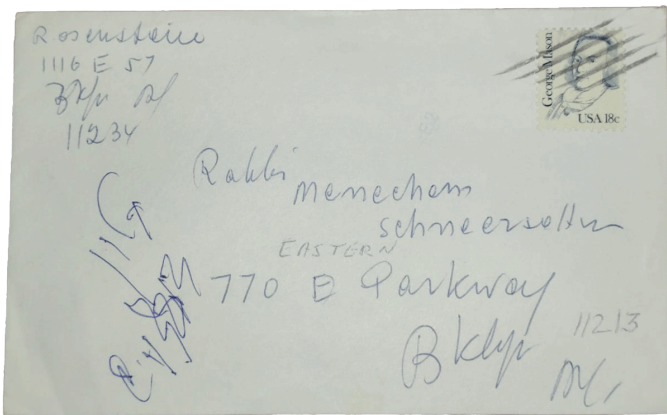 Rosenstein
1116 E 57
Bklyn NY
11234
George Mason
USA 18c
Rabbi
Menechem
Schneersohn
EASTERN
770 E Parkway
Bklyn 11213
NY